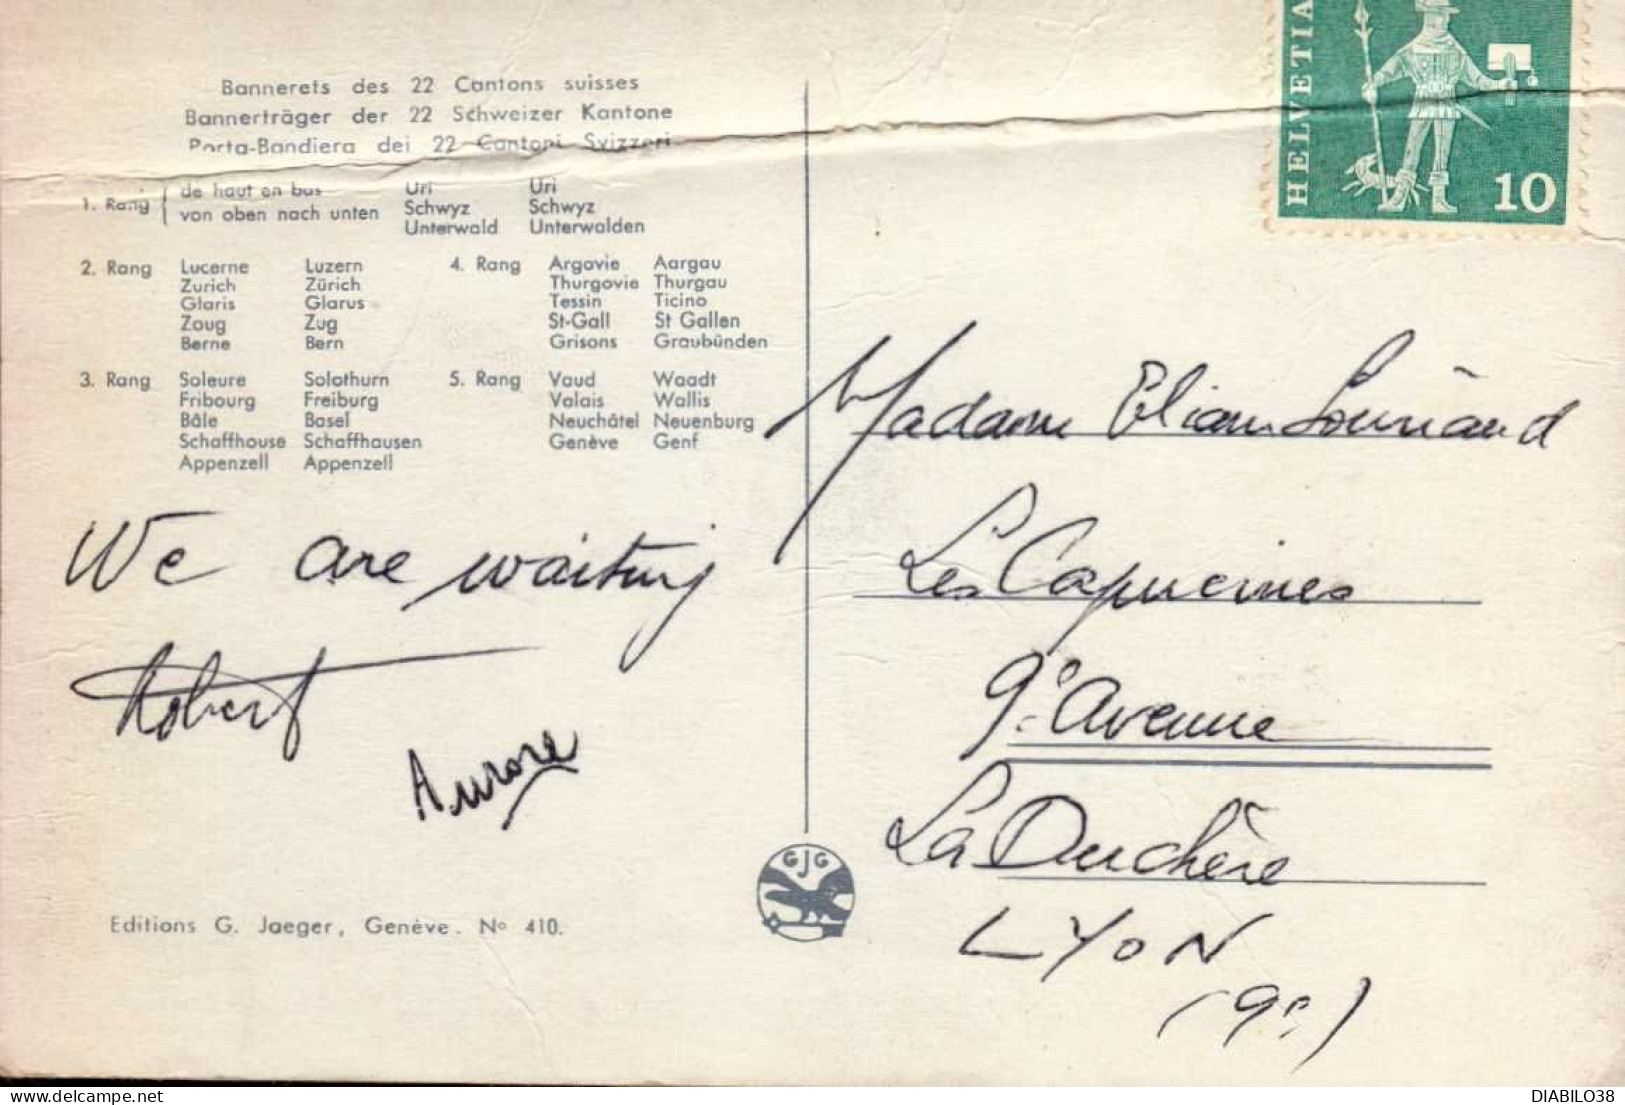 Bannerets des 22 Cantons suisses
Bannerträger der 22 Schweizer Kantone
Porta-Bandiera dei 22 Cantoni Svizzeri
1. Rang de haut en bas Uri Uri
von oben nach unten Schwyz Schwyz
Unterwald Unterwalden
2. Rang Lucerne Luzern
Zurich Zürich
Glaris Glarus
Zoug Zug
Berne Bern
3. Rang Soleure Solothurn
Fribourg Freiburg
Bâle Basel
Schaffhouse Schaffhausen
Appenzell Appenzell
4. Rang Argovie Aargau
Thurgovie Thurgau
Tessin Ticino
St-Gall St Gallen
Grisons Graubünden
5. Rang Vaud Waadt
Valais Wallis
Neuchâtel Neuenburg
Genève Genf
We are waiting
Robert
Aurore
Editions G. Jaeger, Genève. No 410.
GJG
HELVETIA
10
Madame
Les Capucines
9e Avenue
La Duchère
LYON
(9e)
DIABILO38